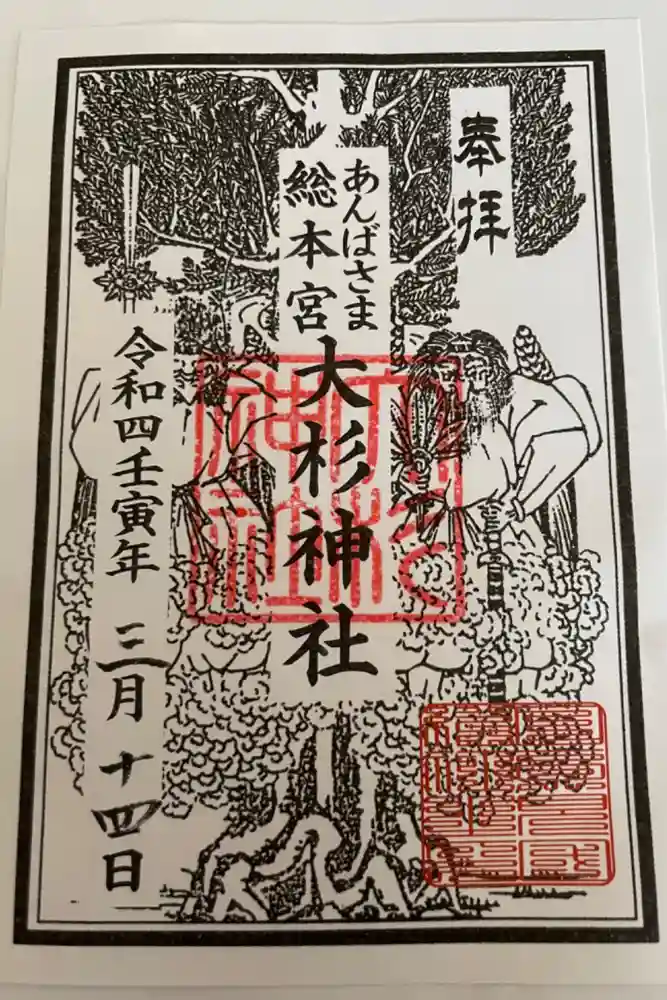 奉拝
あんばさま
総本宮
大杉神社
令和四壬寅年 三月十四日
大杉神社